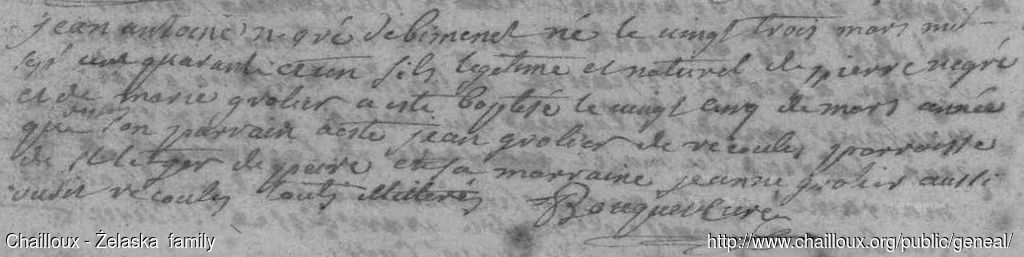 jean antoine negré de bimenet né le vingt trois mars mil
sept cent quarante et un fils legitime et naturel de pierre negré
et de marie grolier a este baptisé le vingt cinq de mars année
que dessus son parrain a este jean grolier de recoules parroisse
de st leger de peire et sa marraine jeanne grolier aussi
dudit recoules touts illiterés Bouquet Curé
Chailloux - Żelaska family
http://www.chailloux.org/public/geneal/